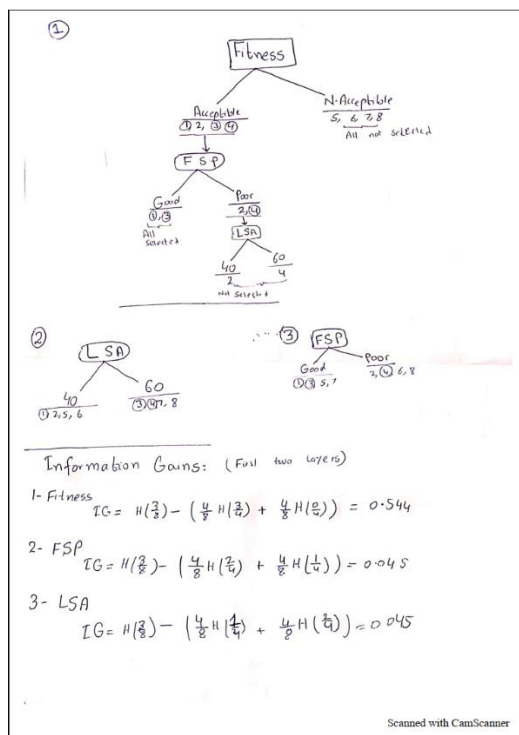 ①
Fitness
Acceptible
①, 2, ③ ④
N-Acceptible
5, 6 7, 8
All not selected
FSP
Good
①, ③
All
selected
Poor
2, ④
LSA
40
2
60
4
Not selected
②
LSA
40
① 2, 5, 6
60
③ ④ 7, 8
③
FSP
Good
① ③ 5, 7
Poor
2, ④ 6, 8
Information Gains: (First two layers)
1- Fitness
IG = H(3/8) - (4/8 H(3/4) + 4/8 H(0/4)) = 0.544
2- FSP
IG = H(3/8) - (4/8 H(2/4) + 4/8 H(1/4)) = 0.045
3- LSA
IG = H(3/8) - (4/8 H(1/4) + 4/8 H(2/4)) = 0.045
Scanned with CamScanner